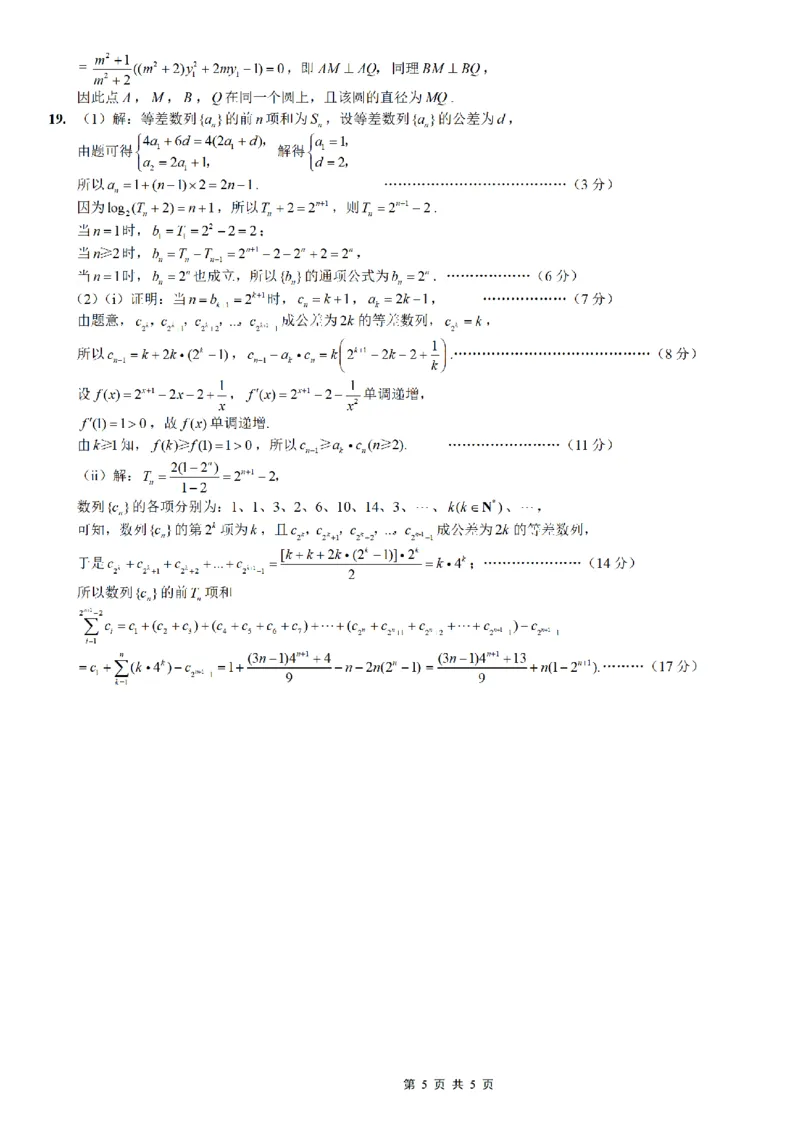 = \frac{m^2+1}{m^2+2}((m^2+2)y_1^2+2my_1-1)=0，即 AM⊥AQ，同理 BM⊥BQ，
因此点 A， M， B， Q 在同一个圆上，且该圆的直径为 MQ .
19. （1）解：等差数列{a_n}的前 n 项和为 S_n，设等差数列{a_n}的公差为 d，
由题可得 \begin{cases}4a_1+6d=4(2a_1+d),\\a_2=2a_1+1,\end{cases} 解得 \begin{cases}a_1=1,\\d=2,\end{cases}
所以 a_n=1+(n-1)×2=2n-1 . …………………………………（3 分）
因为 log_2(T_n+2)=n+1，所以 T_n+2=2^{n+1}，则 T_n=2^{n-1}-2 .
当 n=1 时， b_1=T_1=2^2-2=2；
当 n≥2 时， b_n=T_n-T_{n-1}=2^{n+1}-2-2^n+2=2^n，
当 n=1 时， b_n=2^n 也成立，所以{b_n}的通项公式为 b_n=2^n . ………………（6 分）
（2）（i）证明：当 n=b_{k+1}=2^{k+1} 时， c_n=k+1， a_k=2k-1， ………………（7 分）
由题意， c_{2^k}， c_{2^k+1}， c_{2^k+2}， …， c_{2^{k+1}-1} 成公差为 2k 的等差数列， c_{2^k}=k，
所以 c_{n-1}=k+2k•(2^k-1)， c_{n-1}-a_k•c_n=k\left(2^{k+1}-2k-2+\frac{1}{k}\right).……………………………………（8 分）
设 f(x)=2^{x+1}-2x-2+\frac{1}{x}， f′(x)=2^{x+1}-2-\frac{1}{x^2} 单调递增，
f′(1)=1>0，故 f(x) 单调递增.
由 k≥1 知， f(k)≥f(1)=1>0，所以 c_{n-1}≥a_k•c_n(n≥2). ……………………（11 分）
（ii）解： T_n=\frac{2(1-2^n)}{1-2}=2^{n+1}-2，
数列{c_n}的各项分别为：1、1、3、2、6、10、14、3、…、 k(k∈N^*)、…，
可知，数列{c_n}的第 2^k 项为 k，且 c_{2^k}， c_{2^k+1}， c_{2^k+2}， …， c_{2^{k+1}-1} 成公差为 2k 的等差数列，
于是 c_{2^k}+c_{2^k+1}+c_{2^k+2}+...+c_{2^{k+1}-1}=\frac{[k+k+2k•(2^k-1)]•2^k}{2}=k•4^k；…………………（14 分）
所以数列{c_n}的前 T_n 项和
\sum_{i=1}^{2^{n+1}-2}c_i=c_1+(c_2+c_3)+(c_4+c_5+c_6+c_7)+…+(c_{2^n}+c_{2^n+1}+c_{2^n+2}+…+c_{2^{n+1}-1})-c_{2^{n+1}-1}
=c_1+\sum_{k=1}^{n}(k•4^k)-c_{2^{n+1}-1}=1+\frac{(3n-1)4^{n+1}+4}{9}-n-2n(2^n-1)=\frac{(3n-1)4^{n+1}+13}{9}+n(1-2^{n+1}).………（17 分）
第 5 页 共 5 页